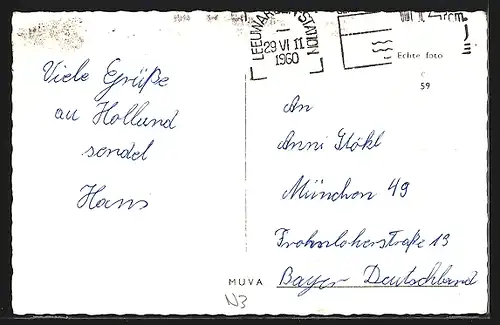 LEEUWARDEN STATION
29 VI 11
1960
Echte foto
59
Viele Grüße
au Hollund
sendel
Hans
An
Anni Stökl
München 49
Frohnloherstraße 19
Bayer Deutschland
MUVA
N3